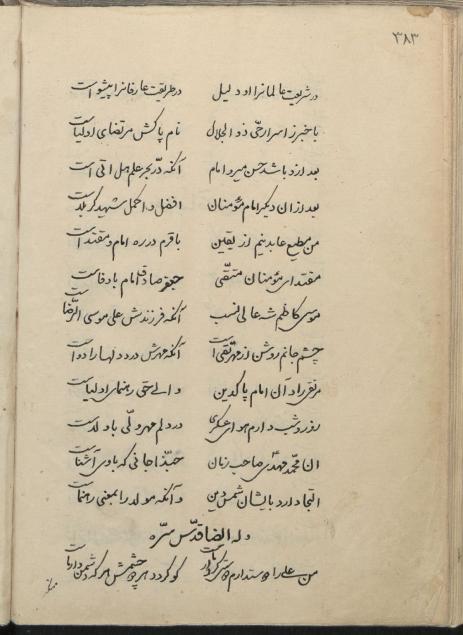 ۳۸۳
در شریعت عالمانرا او دلیل در طریقت عارفانرا پیشواست
با خبر ز اسرار حی ذو الجلال نام پاکش مرتضای اولیاست
بعد ازو باشد حسن میر و امام آنکه در بحر علم هل اتی است
بعد ازان دیگر امام مؤمنان افضل و اکمل شهید کربلاست
من مطیع عابدینم از یقین باقرم در ره امام و مقتداست
مقتدای مؤمنان متقی جعفر صادق امام با وفاست
موسی کاظم شه عالی نسب آنکه فرزندش علی موسی الرضاست
چشم جانم روشن از مهر تقی است آنکه مهرش درد دلها را دواست
مر نقی را دان امام پاکدین والی حق رهنمای اولیاست
روز و شب دارم هوای عسکری در دلم مهر ولی باولاست
ان محمد مهدی صاحب زمان حبذا جانی که با وی آشناست
التجا دارد بایشان شمس دین و آنکه مولا را بمعنی رهنماست
وله ایضا قدس سره
من علی را دوستدارم کو کردد هر دو چشمش هر که دشمن